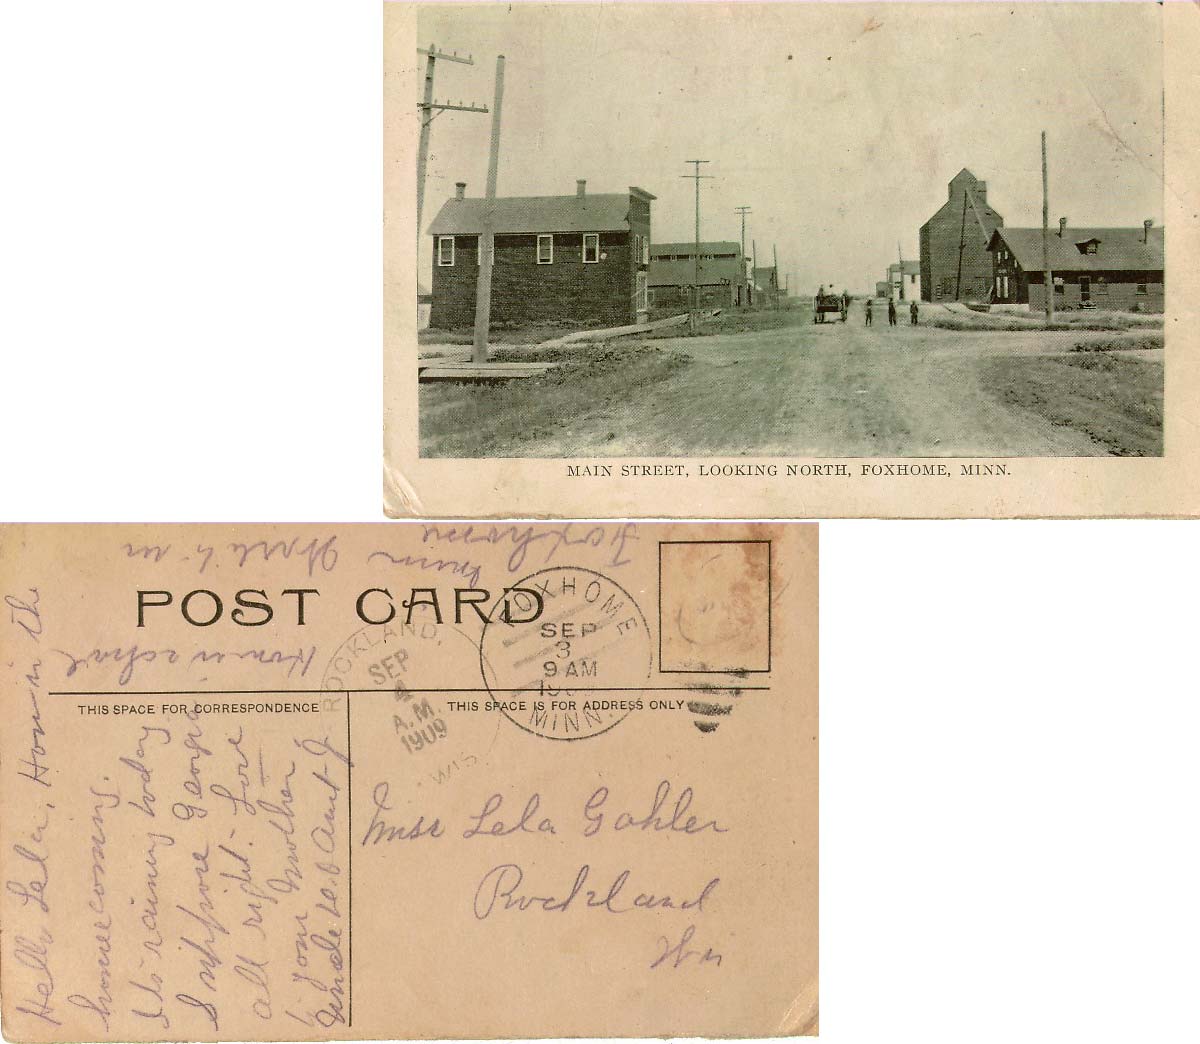 MAIN STREET, LOOKING NORTH, FOXHOME, MINN.
Foxhome
Minn
POST CARD
THIS SPACE FOR CORRESPONDENCE
THIS SPACE IS FOR ADDRESS ONLY
FOXHOME
SEP
3
9 AM
MINN.
ROCKLAND,
SEP
4
A.M.
1909
WIS.
Hello Lela, How is the
homecoming.
Its raining today
I suppose George
all right. Love
to your Mother
Uncle W. & Aunt J.
How is school
Miss Lela Gohler
Rockland
Wis